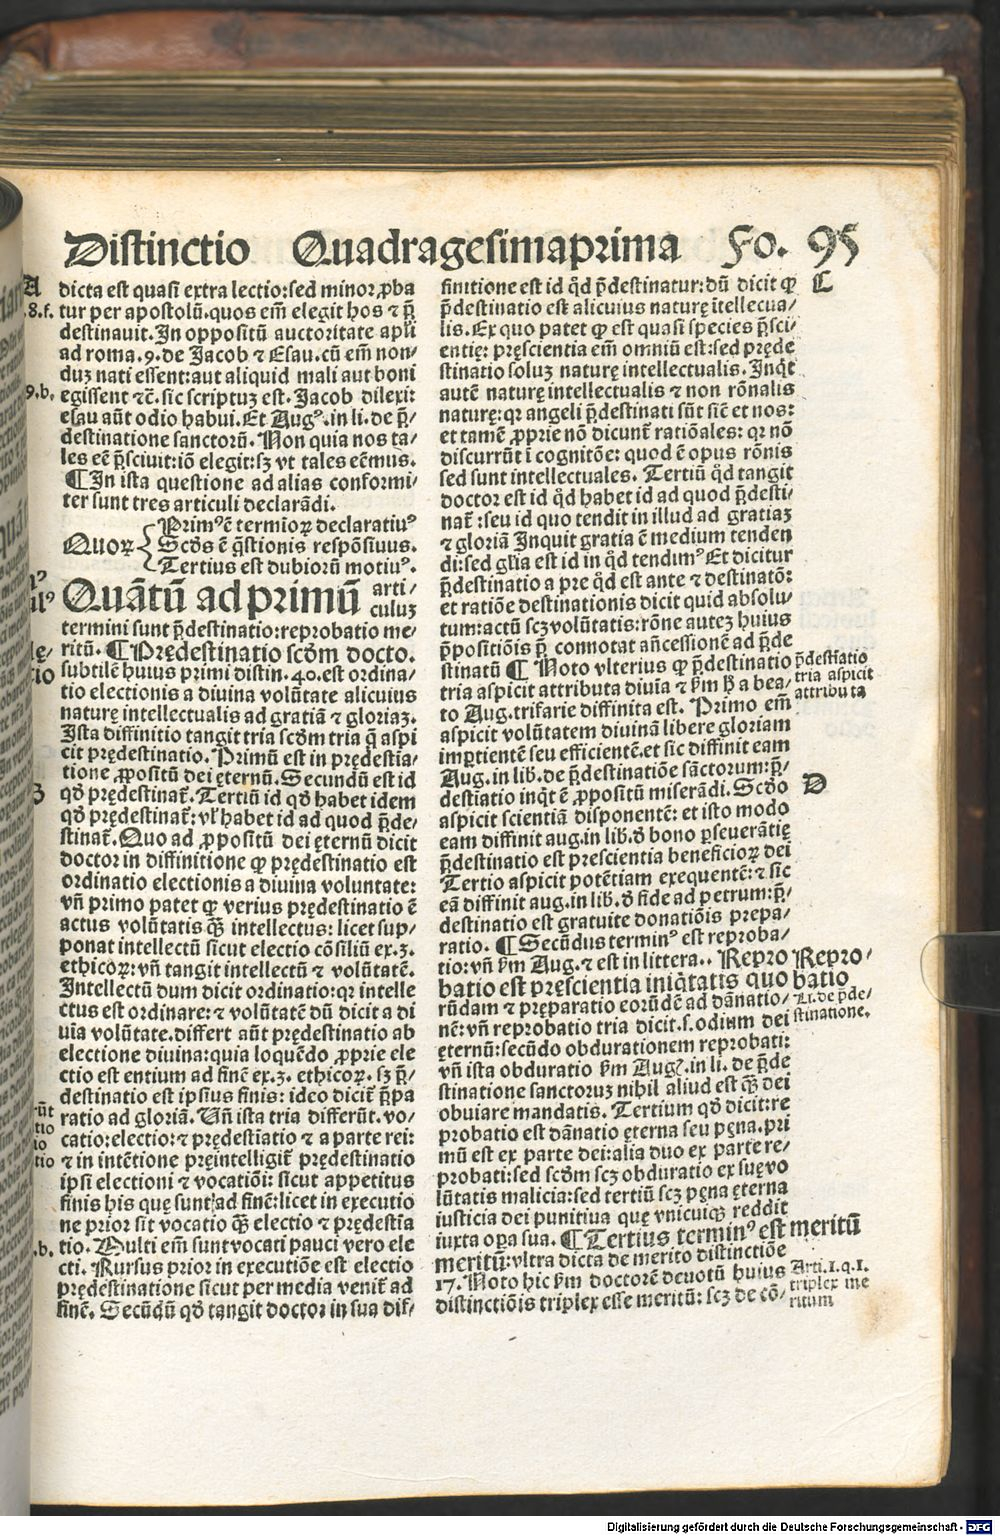 Distinctio Quadragesimaprima Fo. 95
A
8.f.
9.b.
dicta est quasi extra lectio:sed minor ꝓba
tur per apostolū.quos em̄ elegit hos ⁊ p̄
destinauit.In oppositū auctoritate apľi
ad roma.9.de Jacob ⁊ Esau.cū em̄ non⸗
duꝫ nati essent:aut aliquid mali aut boni
egissent ⁊c̄.sic scriptuꝫ est.Jacob dilexi:
esau aūt odio habui.Et Augꝰ.in li.de p̄⸗
destinatione sanctorū.Non quia nos ta⸗
les eē p̄sciuit:iō elegit:sꝫ vt tales eēmus.
¶In ista questione ad alias conformi⸗
ter sunt tres articuli declarādi.
Quoꝝ
Primꝰ ē termioꝝ declaratiuꝰ
Scd̄s ē q̄stionis respōsiuus.
Tertius est dubiorū motiuꝰ.
Quātū ad primū arti⸗
culuꝫ
termini sunt p̄destinatio:reprobatio me⸗
ritū.¶Prędestinatio scd̄m docto.
subtilē huius primi distin.40.est ordina⸗
tio electionis a diuina volūtate alicuius
naturę intellectualis ad gratiā ⁊ gloriaꝫ.
Ista diffinitio tangit tria scd̄m tria q̄ aspi
cit prędestinatio.Primū est in prędestia⸗
tione ꝓpositū dei ęternū.Secundū est id
qd̄ prędestinat̄.Tertiū id qd̄ habet idem
qd̄ prędestinat̄:vľ habet id ad quod p̄de⸗
stinat̄.Quo ad ꝓpositū dei ęternū dicit
doctor in diffinitione ꝙ prędestinatio est
ordinatio electionis a diuina voluntate:
vn̄ primo patet ꝙ verius prędestinatio ē
actus volūtatis q̄ꝫ intellectus:licet sup⸗
ponat intellectū sicut electio cōsiliū ex.3.
ethicoꝝ:vn̄ tangit intellectū ⁊ volūtatē.
Intellectū dum dicit ordinatio:qꝛ intelle
ctus est ordinare:⁊ volūtatē dū dicit a di
uīa volūtate.differt aūt prędestinatio ab
electione diuina:quia loquēdo ꝓprie ele
ctio est entium ad finē ex.3.ethicoꝝ.sꝫ p̄⸗
destinatio est ipsius finis:ideo dicit̄ p̄pa
ratio ad gloriā.Vn̄ ista tria differūt.vo⸗
catio:electio:⁊ prędestiatio ⁊ a parte rei:
⁊ in intētione pręintelligit̄ prędestinatio
ipsi electioni ⁊ vocatiōi:sicut appetitus
finis his quę sunt ad finē:licet in executio
ne prior sit vocatio q̄ꝫ electio ⁊ prędestīa
tio.Multi em̄ sunt vocati pauci vero ele
cti.Rursus prior in executiōe est electio
prędestinatione sicut per media venit̄ ad
finē.Secūdū qd̄ tangit doctor in sua dif⸗
finitione est id q̄d p̄destinatur:dū dicit ꝙ
p̄destinatio est alicuius naturę ītellectua⸗
lis.Ex quo patet ꝙ est quasi species p̄sci⸗
entię:pręscientia em̄ omniū est:sed pręde
stinatio soluꝫ naturę intellectualis.Inq̇t
autē naturę intellectualis ⁊ non rōnalis
naturę:qꝛ angeli p̄destinati sūt sicē et nos:
et tamē ꝓprie nō dicunt̄ ratiōales:qꝛ nō
discurrūt ī cognitōe:quod ē opus rōnis
sed sunt intellectuales.Tertiū q̄d tangit
doctor est id q̄d habet id ad quod p̄desti⸗
nat̄:seu id quo tendit in illud ad gratiaꝫ
⁊ gloriā Inquit gratia ē medium tenden
di:sed gľia est id in q̄d tendimꝰ Et dicitur
p̄destinatio a pre q̄d est ante ⁊ destinatō:
et ratiōe destinationis dicit quid absolu⸗
tum:actū scꝫ volūtatis:rōne auteꝫ huius
p̄positiōis p̄ connotat an̄cessionē ad p̄de
stinatū ¶ Noto vlterius ꝙ p̄destinatio
tria aspicit attributa diuia ⁊ km̄ ħ a bea⸗
to Aug.trifarie diffinita est. Primo em̄
aspicit volūtatem diuinā libere gloriam
imꝑtientē seu efficientē.et sic diffinit eam
Aug.in lib.de p̄destinatiōe sāctorum:p̄⸗
destiatio inq̇t ē ꝓpositū miserādi.Scd̄o
aspicit scientiā disponentē:et isto modo
eam diffinit aug.in lib.ď bono ꝑseuerātię
p̄destinatio est prescientia beneficioꝝ dei
Tertio aspicit potētiam exequentē:⁊ sic
eā diffinit aug.in lib.ď fide ad petrum:p̄⸗
destinatio est gratuite donatiōis prepa⸗
ratio.¶Secūdus terminꝰ est reproba⸗
tio:vn̄ km̄ Aug.⁊ est in littera..Repro
batio est pręscientia iniq̇tatis quo
rūdam ⁊ pręparatio eorūdē ad dānatio⸗
nē:vn̄ reprobatio tria dicit.s.odium dei
ęternū:secūdo obdurationem reprobati:
vn̄ ista obduratio km̄ Augꝰ.in li.de p̄de
stinatione sanctoruꝫ nihil aliud est q̄ꝫ dei
obuiare mandatis.Tertium qd̄ dicit:re
probatio est dānatio ęterna seu pęna.pri
mū est ex parte dei:alia duo ex parte re⸗
probati:sed scd̄m scꝫ obduratio ex suę vo
lūtatis malicia:sed tertiū scꝫ pęna ęterna
iusticia dei punitiua quę vnicuiqꝫ reddit
iuxta oꝑa sua.¶Tertius terminꝰ est
meritū:vltra dicta de merito distinctiōe
17.Noto hic km̄ doctorē deuotū huius
distinctiōis triplex esse meritū:scꝫ de cō⸗
C
p̄destīatio
tria aspicit
attributa
D
Repro⸗
batio
Li.de p̄de⸗
stinatione.
meritū
Arti.1.q.1.
triplex me
ritum
Digitalisierung gefördert durch die Deutsche Forschungsgemeinschaft - DFG